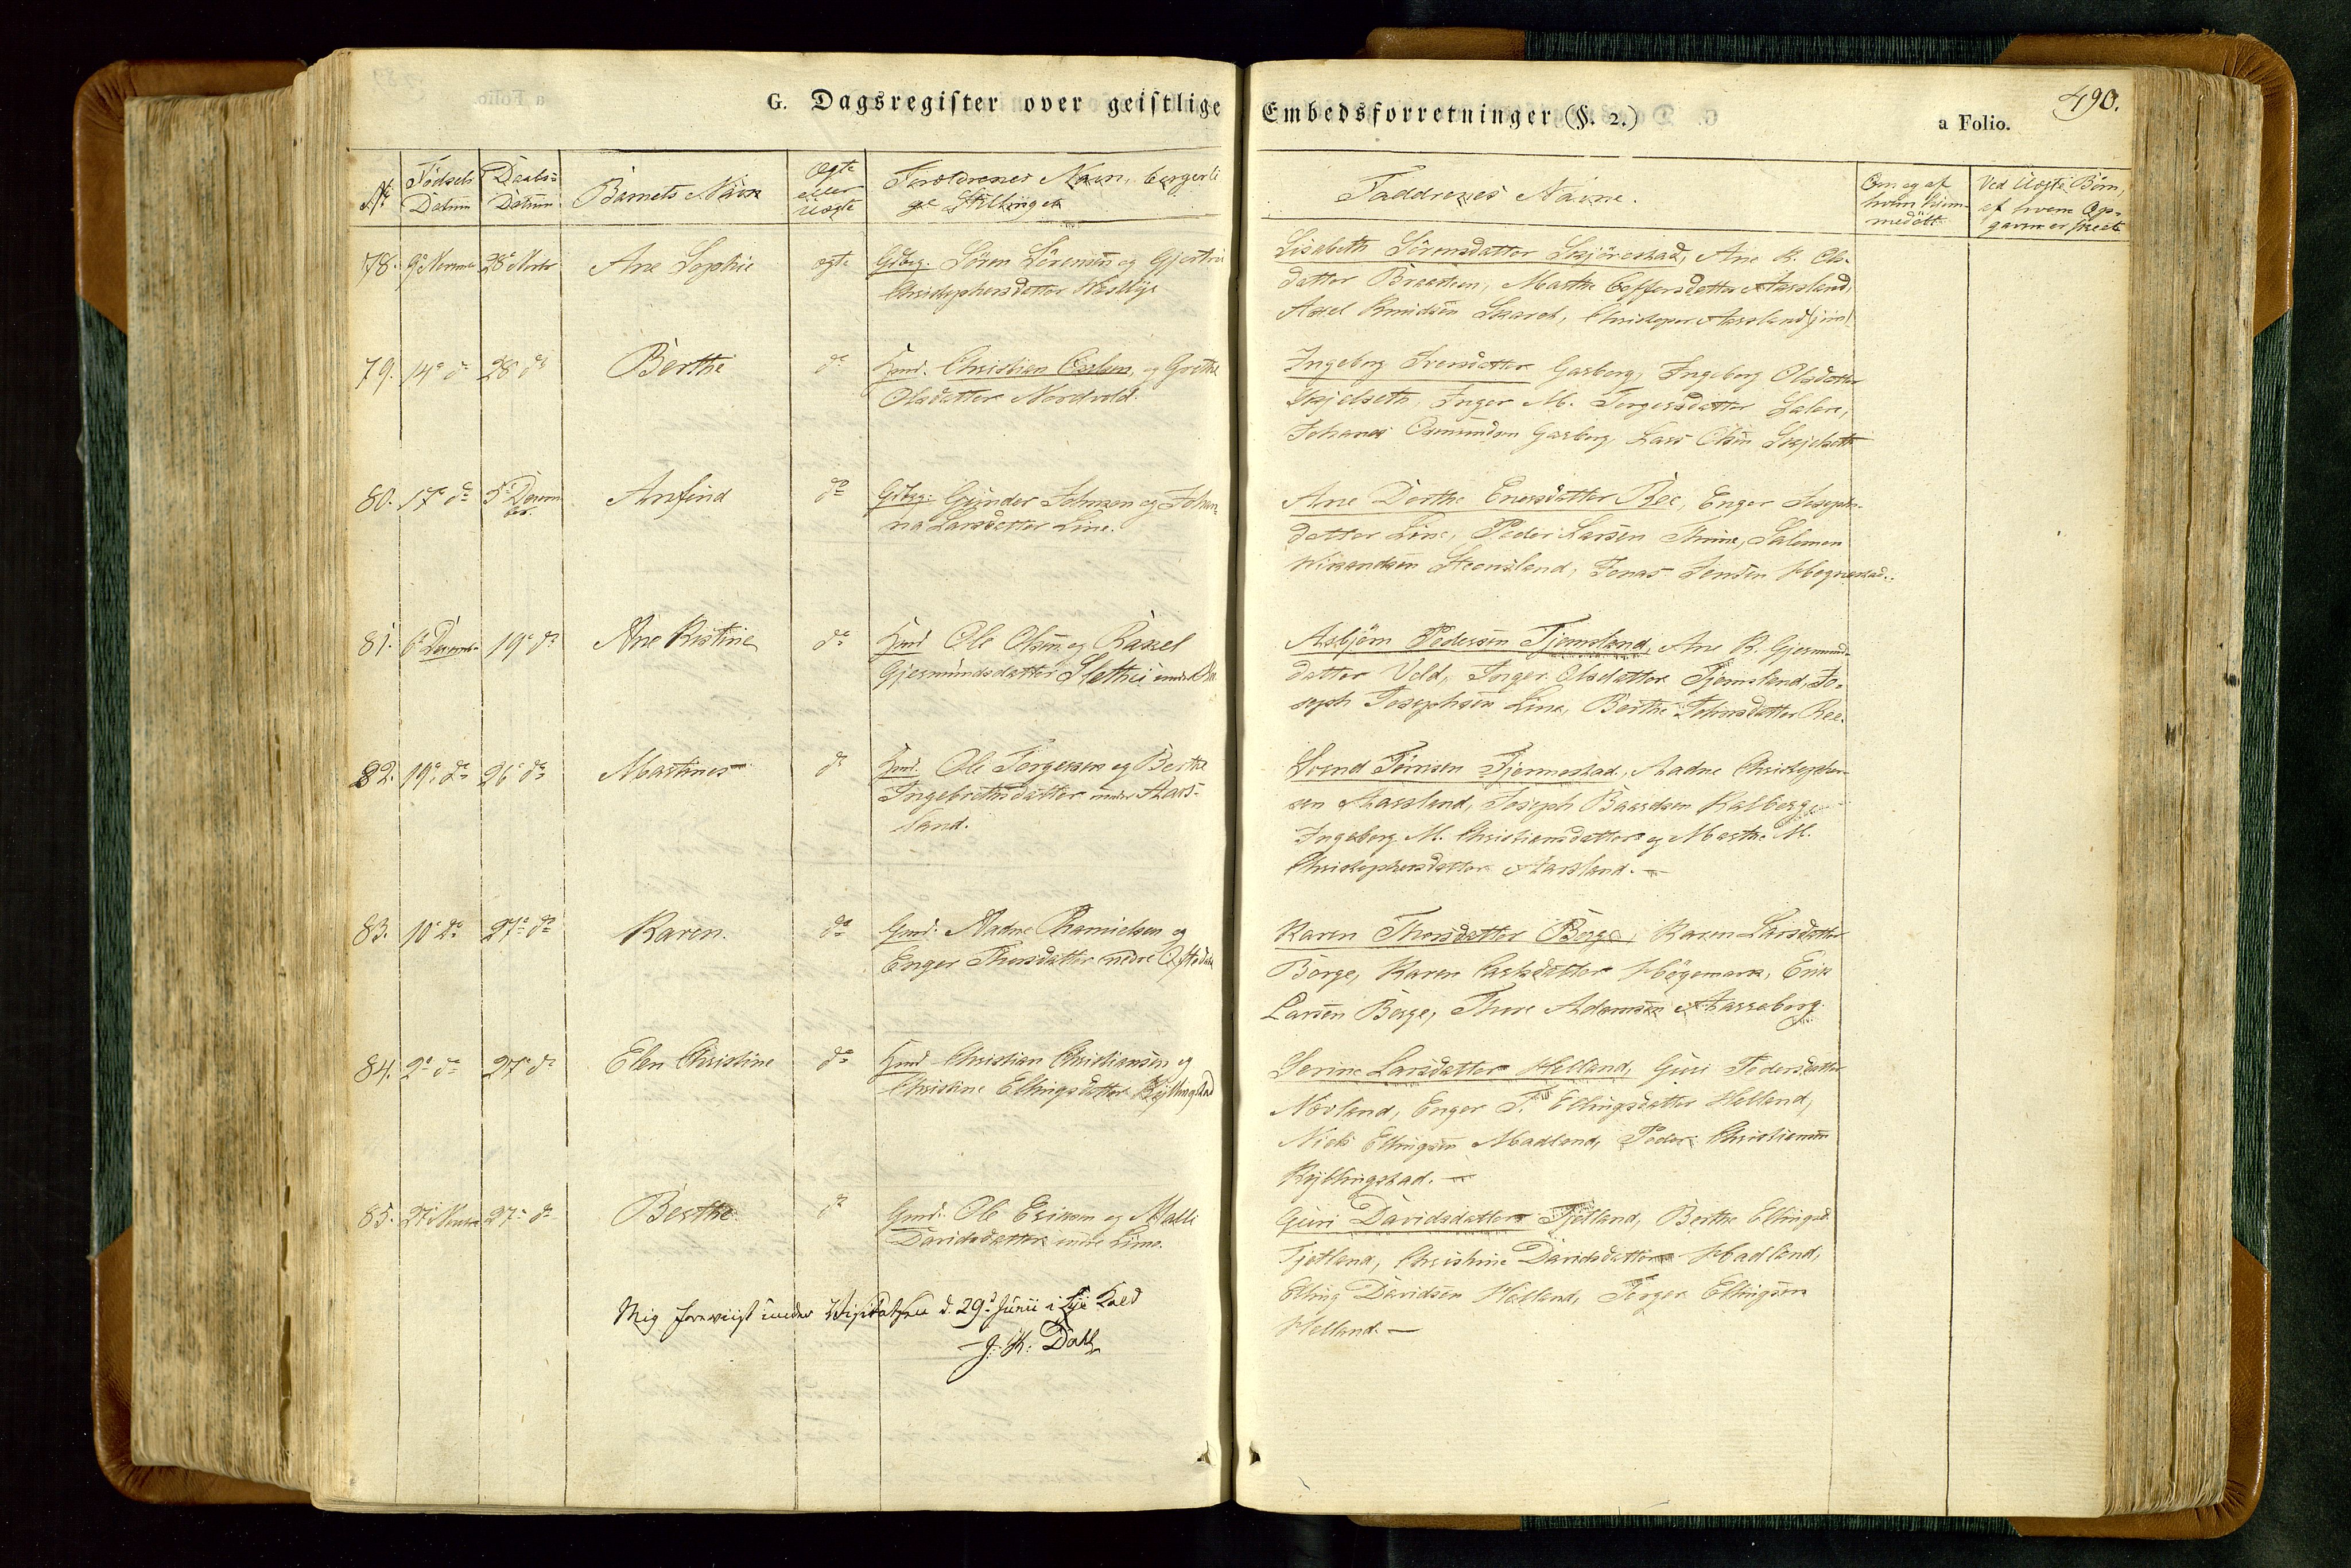 G. Dagsregister over geistlige Embedsforretninger (§. 2.)
a Folio.
490.
No
Fødsels Datum
Daabs- Datum
Barnets Navn
Ægte eller Uægte
Forældrenes Navn, borgerlige Stilling
Faddrenes Navne.
Om og af hvem hjemmedøbt
Ved Uægte Børn, af hvem Opgaven er skeet
78. 9de Novem 28de Novbr Ane Sophie ægte Gbrg. Sören Sörensen og Gjertrü
Christophersdatter Westlye
Lisabeth Sörensdatter Skjörestad, Ane K. Ols-
datter Braasteen, Marthe Toffersdatter Aarsland,
Axel Knudsen Skaret, Christopher Aarsland jun.
79. 14de do 28 do Berthe do Hmd. Christian Carlsen og Grethe
Olsdatter Nordvold.
Ingeborg Iversdatter Garborg, Ingeborg Olsdatter
Skjelseth, Inger M. Torgersdatter Salen,
Johanes Osmundsen Garborg, Lars Olsen Skjelseth
80. 17de do 5te Decem
ber. Anfind do Gbrg. Gunder Johnsen og Johan-
na Larsdatter Line.
Ane Dorthe Enersdatter Ree, Enger Joseph-
datter Line, Peder Larsen Thime, Salomon
Steensland, Jonas Jensen Hognestad.
81. 6te Decembr 19de do Ane Kistine do Hmd Ole Olsen og Rakel
Gjermundsdatter Slethei under
Asbjörn Pedersen Tjemsland, Ane K. Gjermund-
datter Vold, Inger Olsdatter Tjemsland, Jo-
seph Josephsen Line, Berthe Johnsdatter Ree.
82. 19de do 26de do Martines do Hmd. Ole Torgersen og Berthe
Ingebrethsdatter under Aars-
land.
Svend Tönsen Fjermestad, Aadne Christopher-
sen Aarsland, Joseph Baardsen Kalberg,
Ingeborg M. Christiansdatter og Marthe M.
Christophersdatter Aarsland. —
83. 10de do 27de do Karen. do Gmd. Aadne Thamielsen og
Enger Thorsdatter nedre Oftedal
Karen Thorsdatter Berge, Karen Larsdatter
Berge, Karen Larsdatter Högemark, Erik
Larsen Berge, Thore Adamsen
84. 2de do 27de do Elen Christine do Hmd Christian Christiansen og
Christine Ellingsdatter Kyllingstad
Serine Larsdatter Helland, Guri Pedersdatter
Novland, Enger T. Ellingsdatter Helland,
Niels Ellingsen Madland, Peder Christiansen
Kyllingstad. —
85. 27de Novbr 27de do Berthe do Gmd. Ole Eriksen og Malli
Davidsdatter indre Lime.
Guri Davidsdatter Tjetland, Berthe Ellingsd.
Tjetland, Christine Davidsdatter Madland,
Elling Davidsen Helland, Torger Ellingsen
Helland. —
Mig foreviist under Visitatsen d. 29de Junii i Lye Kald
J. K. Dahl